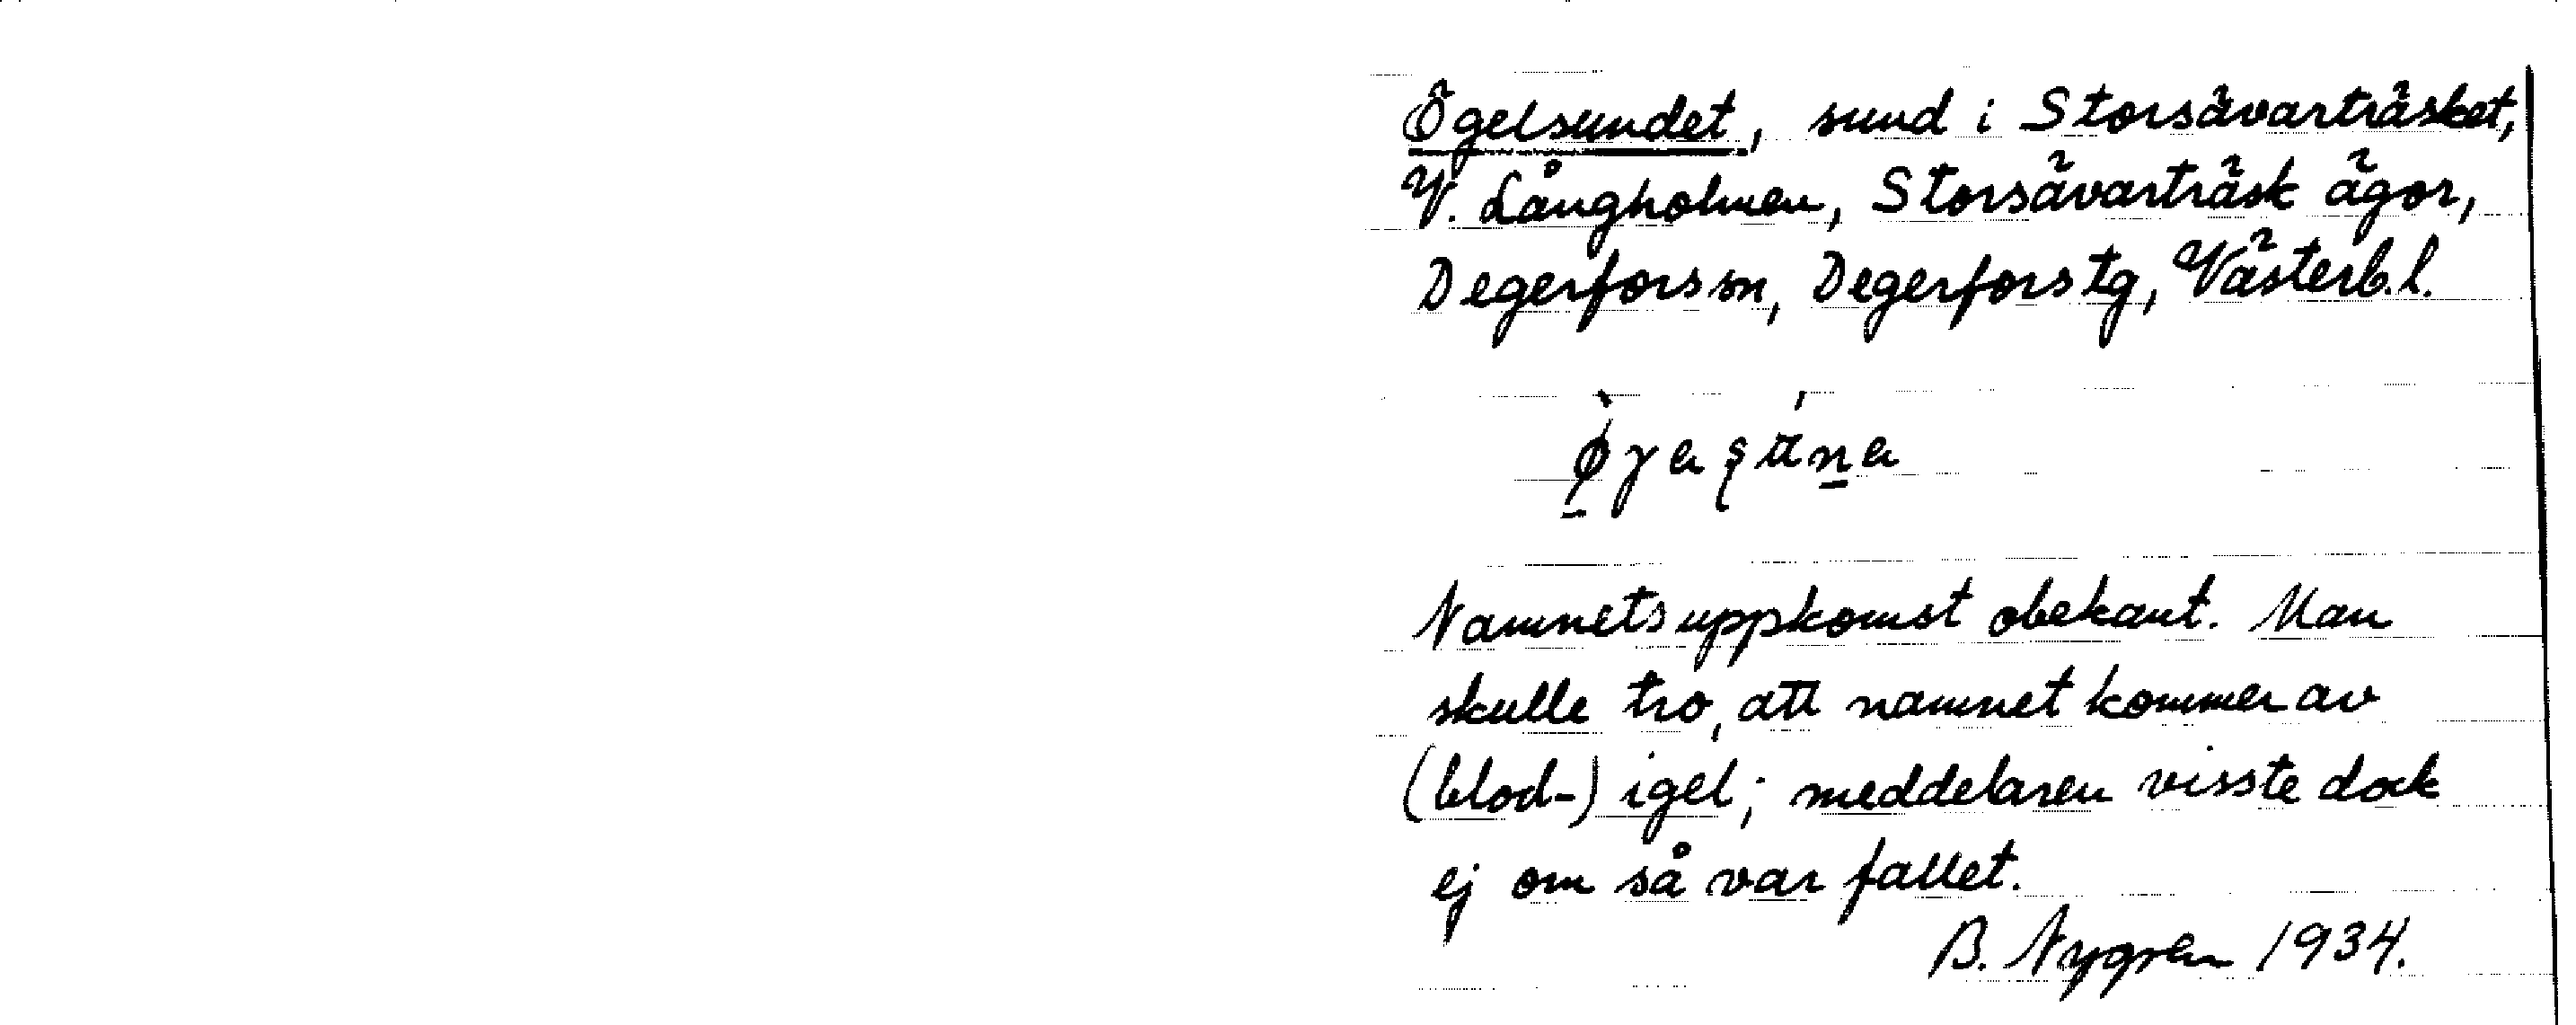 Ögelsundet, sund i Storsävarträsket,
V. Långholmen, Storsävarträsk ägor,
Degerfors sn, Degerfors tg, Västerb. l.
Namnets uppkomst obekant. Man
skulle tro, att namnet kommer av
(blod-) igel; meddelaren visste dock
ej om så var fallet.
B. Nygren 1934.